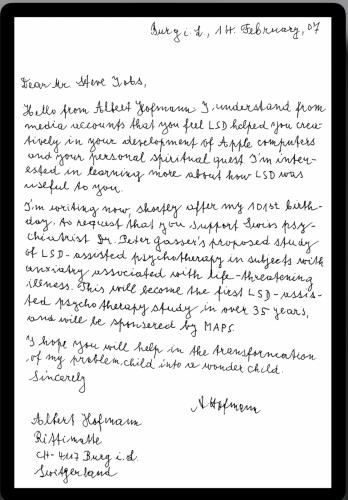 Burg i. L., 14. February, 07
Dear Mr. Steve Jobs,
Hello from Albert Hofmann. I understand from
media accounts that you feel LSD helped you crea-
tively in your development of Apple computers
and your personal spiritual quest. I'm inter-
ested in learning more about how LSD was
useful to you.
I'm writing now, shortly after my 101st birth-
day, to request that you support Swiss psy-
chiatrist Dr. Peter Gasser's proposed study
of LSD-assisted psychotherapy in subjects with
anxiety associated with life-threatening
illness. This will become the first LSD-assis-
ted psychotherapy study in over 35 years,
and will be sponsored by MAPS.
I hope you will help in the transformation
of my problem child into a wonder child.
Sincerely
A. Hofmann
Albert Hofmann
Rittimatte
CH-4117 Burg i. L.
Switzerland